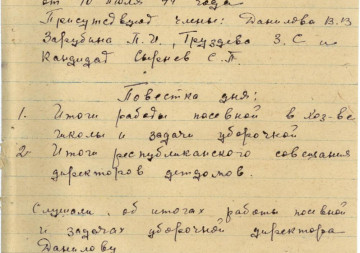 от 10 июля 44 года
Присутствуют члены: Данилова В.З
Зарубина П.И., Груздева З.С и
Кандидат Сырнев С.П.
Повестка дня:
1. Итоги работы посевной в хоз-ве
школы и задачи уборочной
2. Итоги республиканского совещания
директоров детдомов.
Слушали: об итогах работы посевной
и задачах уборочной директора
Данилову